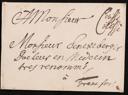 A Monsieur
Monsieur Senckenberg
Docteur en Medecin
tres renommé
a
Francfort